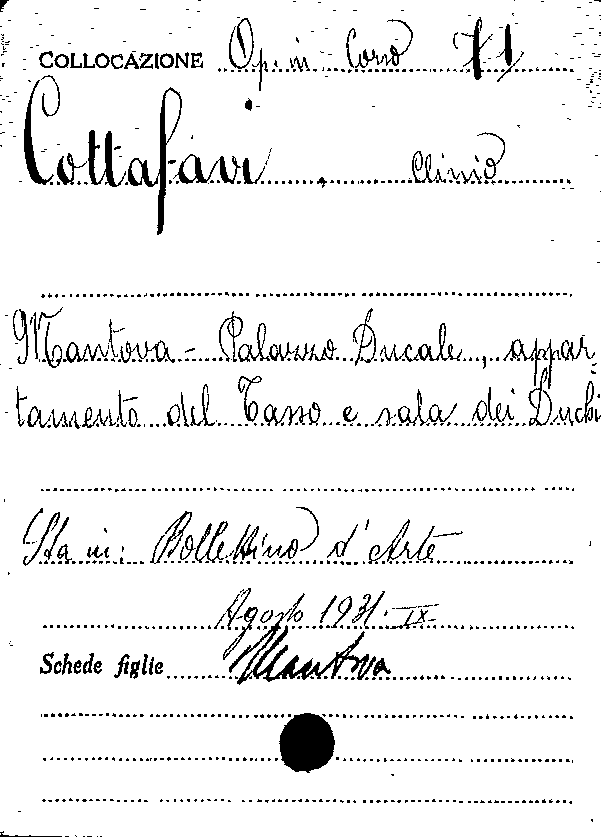 COLLOCAZIONE Op. in Corso 71
Cottafavi, Clinio
Mantova - Palazzo Ducale, appar-
tamento del Tasso e sala dei Duchi
Sta in: Bollettino d'Arte
Agosto 1931. IX
Schede figlie Mantova